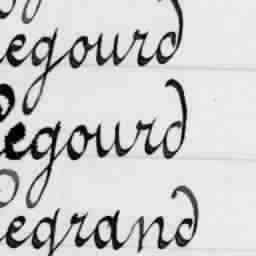 egourd
egourd
egrand